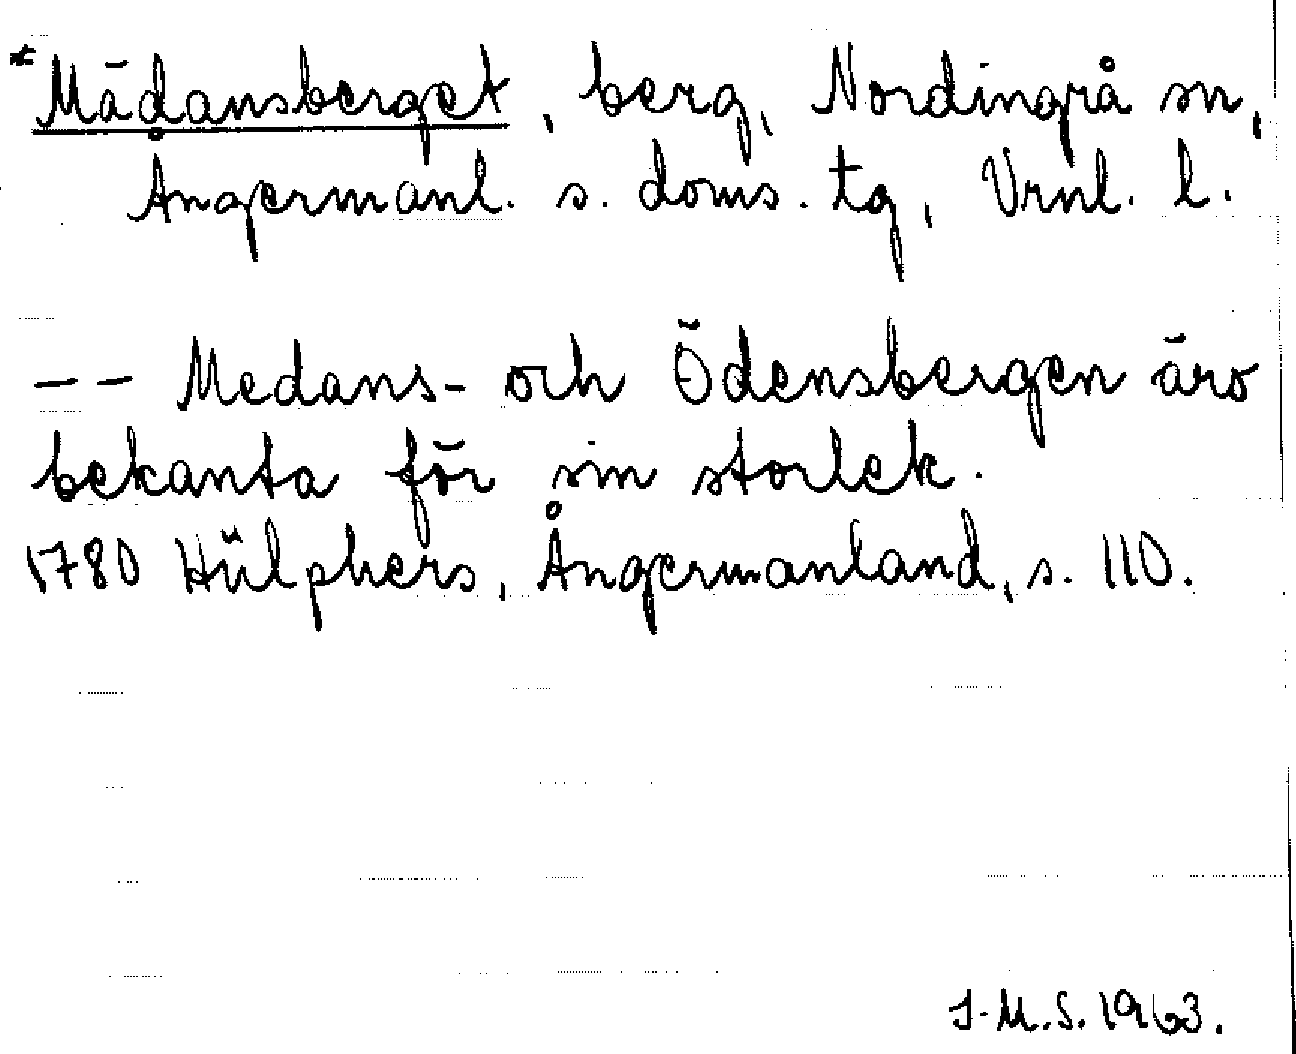 *Mädansberget, berg, Nordingrå sn,
Ångermanl. s. doms. tg, Vrnl. l.
-- Medans- och Ödensbergen äro
bekanta för sin storlek.
1780 Hülphers, Ångermanland, s. 110.
I.M.S. 1963.